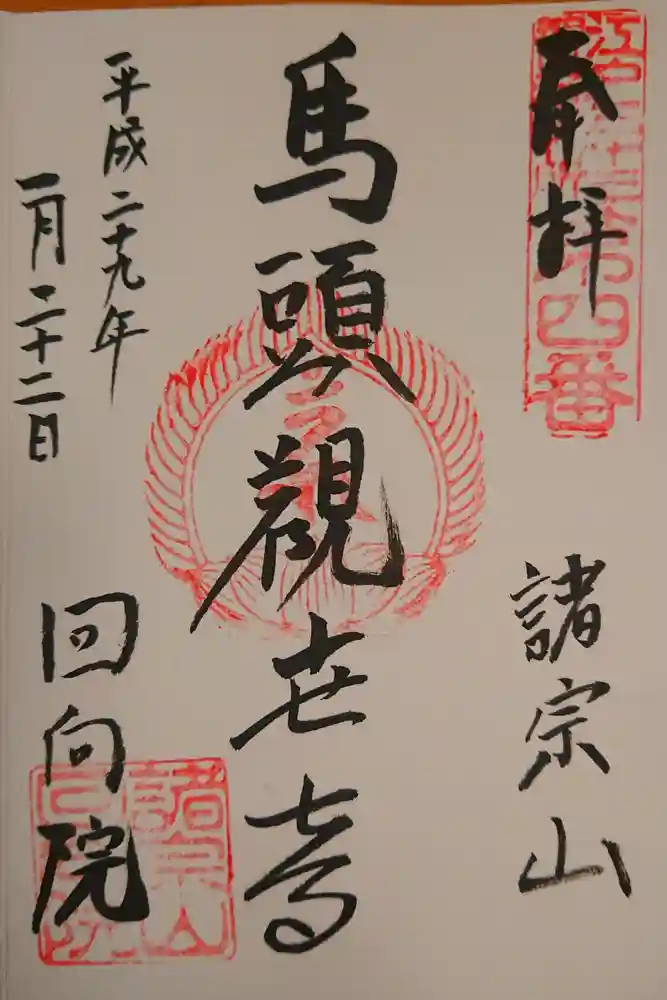 奉拝
諸宗山
馬頭觀世音
平成二十九年
一月二十二日
回向院
四番
諸宗山
回向院